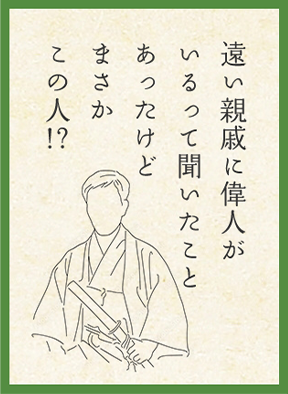 遠い親戚に偉人が
いるって聞いたこと
あったけど
まさか
この人!?